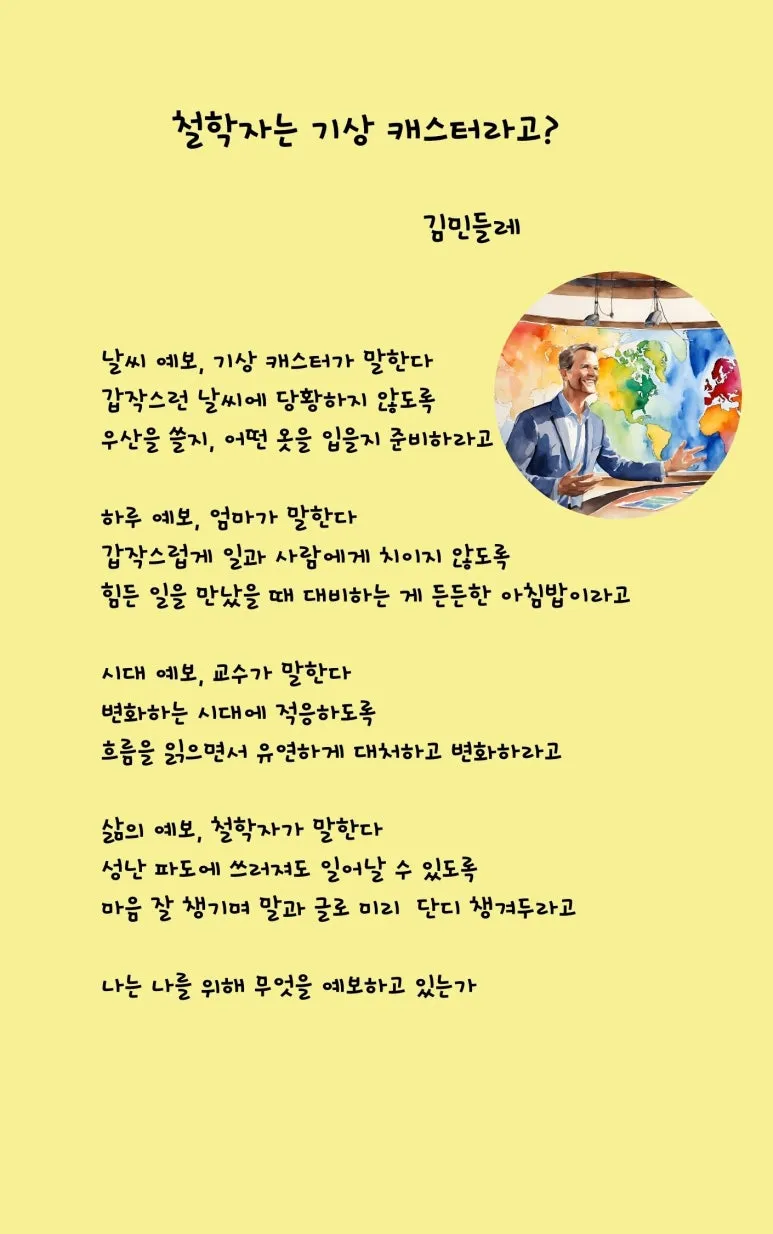 철학자는 기상 캐스터라고?
김민들레
날씨 예보, 기상 캐스터가 말한다
갑작스런 날씨에 당황하지 않도록
우산을 쓸지, 어떤 옷을 입을지 준비하라고
하루 예보, 엄마가 말한다
갑작스럽게 일과 사람에게 치이지 않도록
힘든 일을 만났을 때 대비하는 게 든든한 아침밥이라고
시대 예보, 교수가 말한다
변화하는 시대에 적응하도록
흐름을 읽으면서 유연하게 대처하고 변화하라고
삶의 예보, 철학자가 말한다
성난 파도에 쓰러져도 일어날 수 있도록
마음 잘 챙기며 말과 글로 미리 단디 챙겨두라고
나는 나를 위해 무엇을 예보하고 있는가